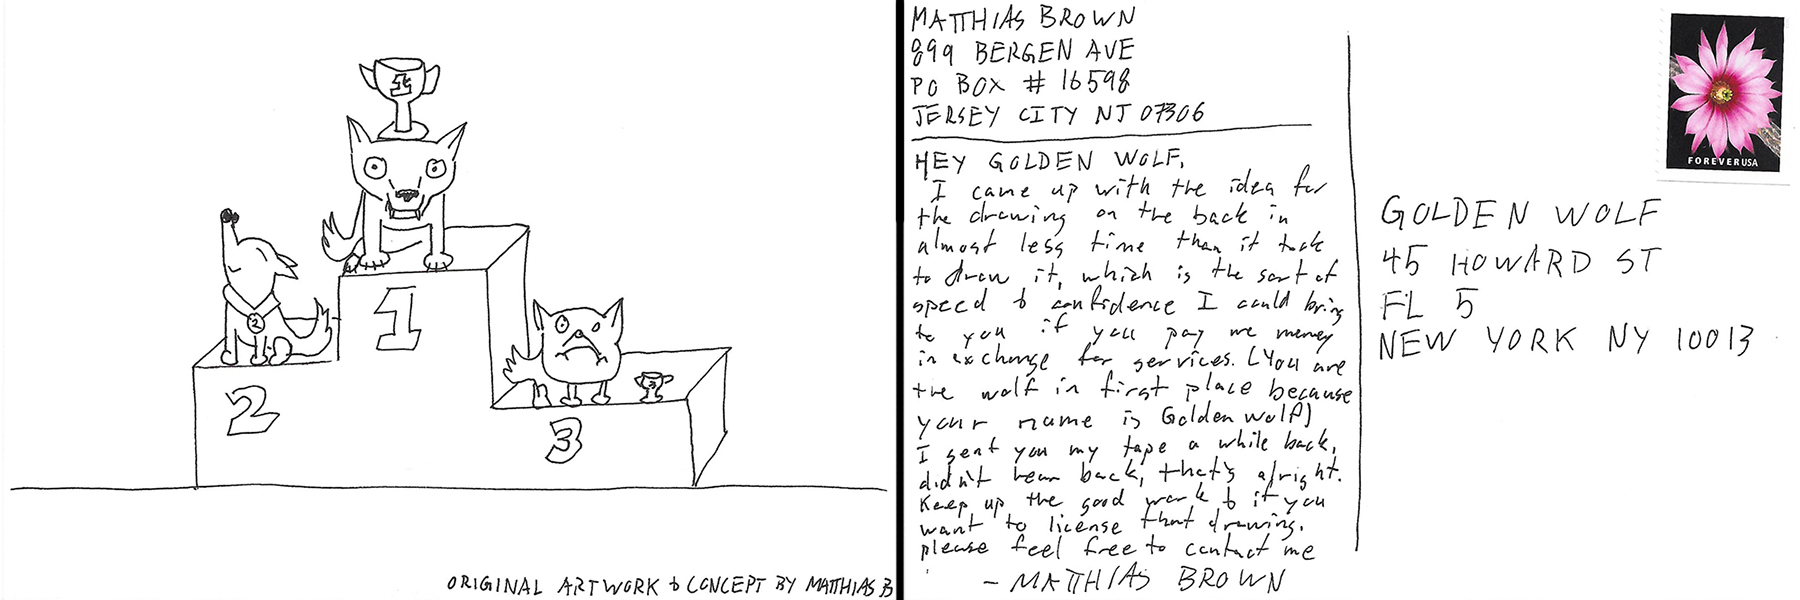 1
1
2
2
3
3
ORIGINAL ARTWORK & CONCEPT BY MATTHIAS B
MATTHIAS BROWN
899 BERGEN AVE
PO BOX # 16598
JERSEY CITY NJ 07306
HEY GOLDEN WOLF,
I came up with the idea for
the drawing on the back in
almost less time than it took
to draw it, which is the sort of
speed & confidence I could bring
to you if you pay me money
in exchange for services. (You are
the wolf in first place because
your name is Golden Wolf)
I sent you my tape a while back,
didn't hear back, that's alright.
Keep up the good work & if you
want to license that drawing,
please feel free to contact me
- MATTHIAS BROWN
FOREVER USA
GOLDEN WOLF
45 HOWARD ST
FL 5
NEW YORK NY 10013